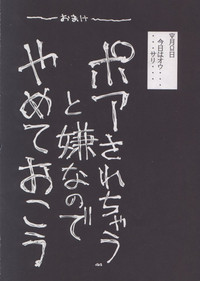 おまけ
▽月□日
今日はオウ・・・
・・・サリ・・・・
ポアされちゃう
と嫌なので
やめておこう